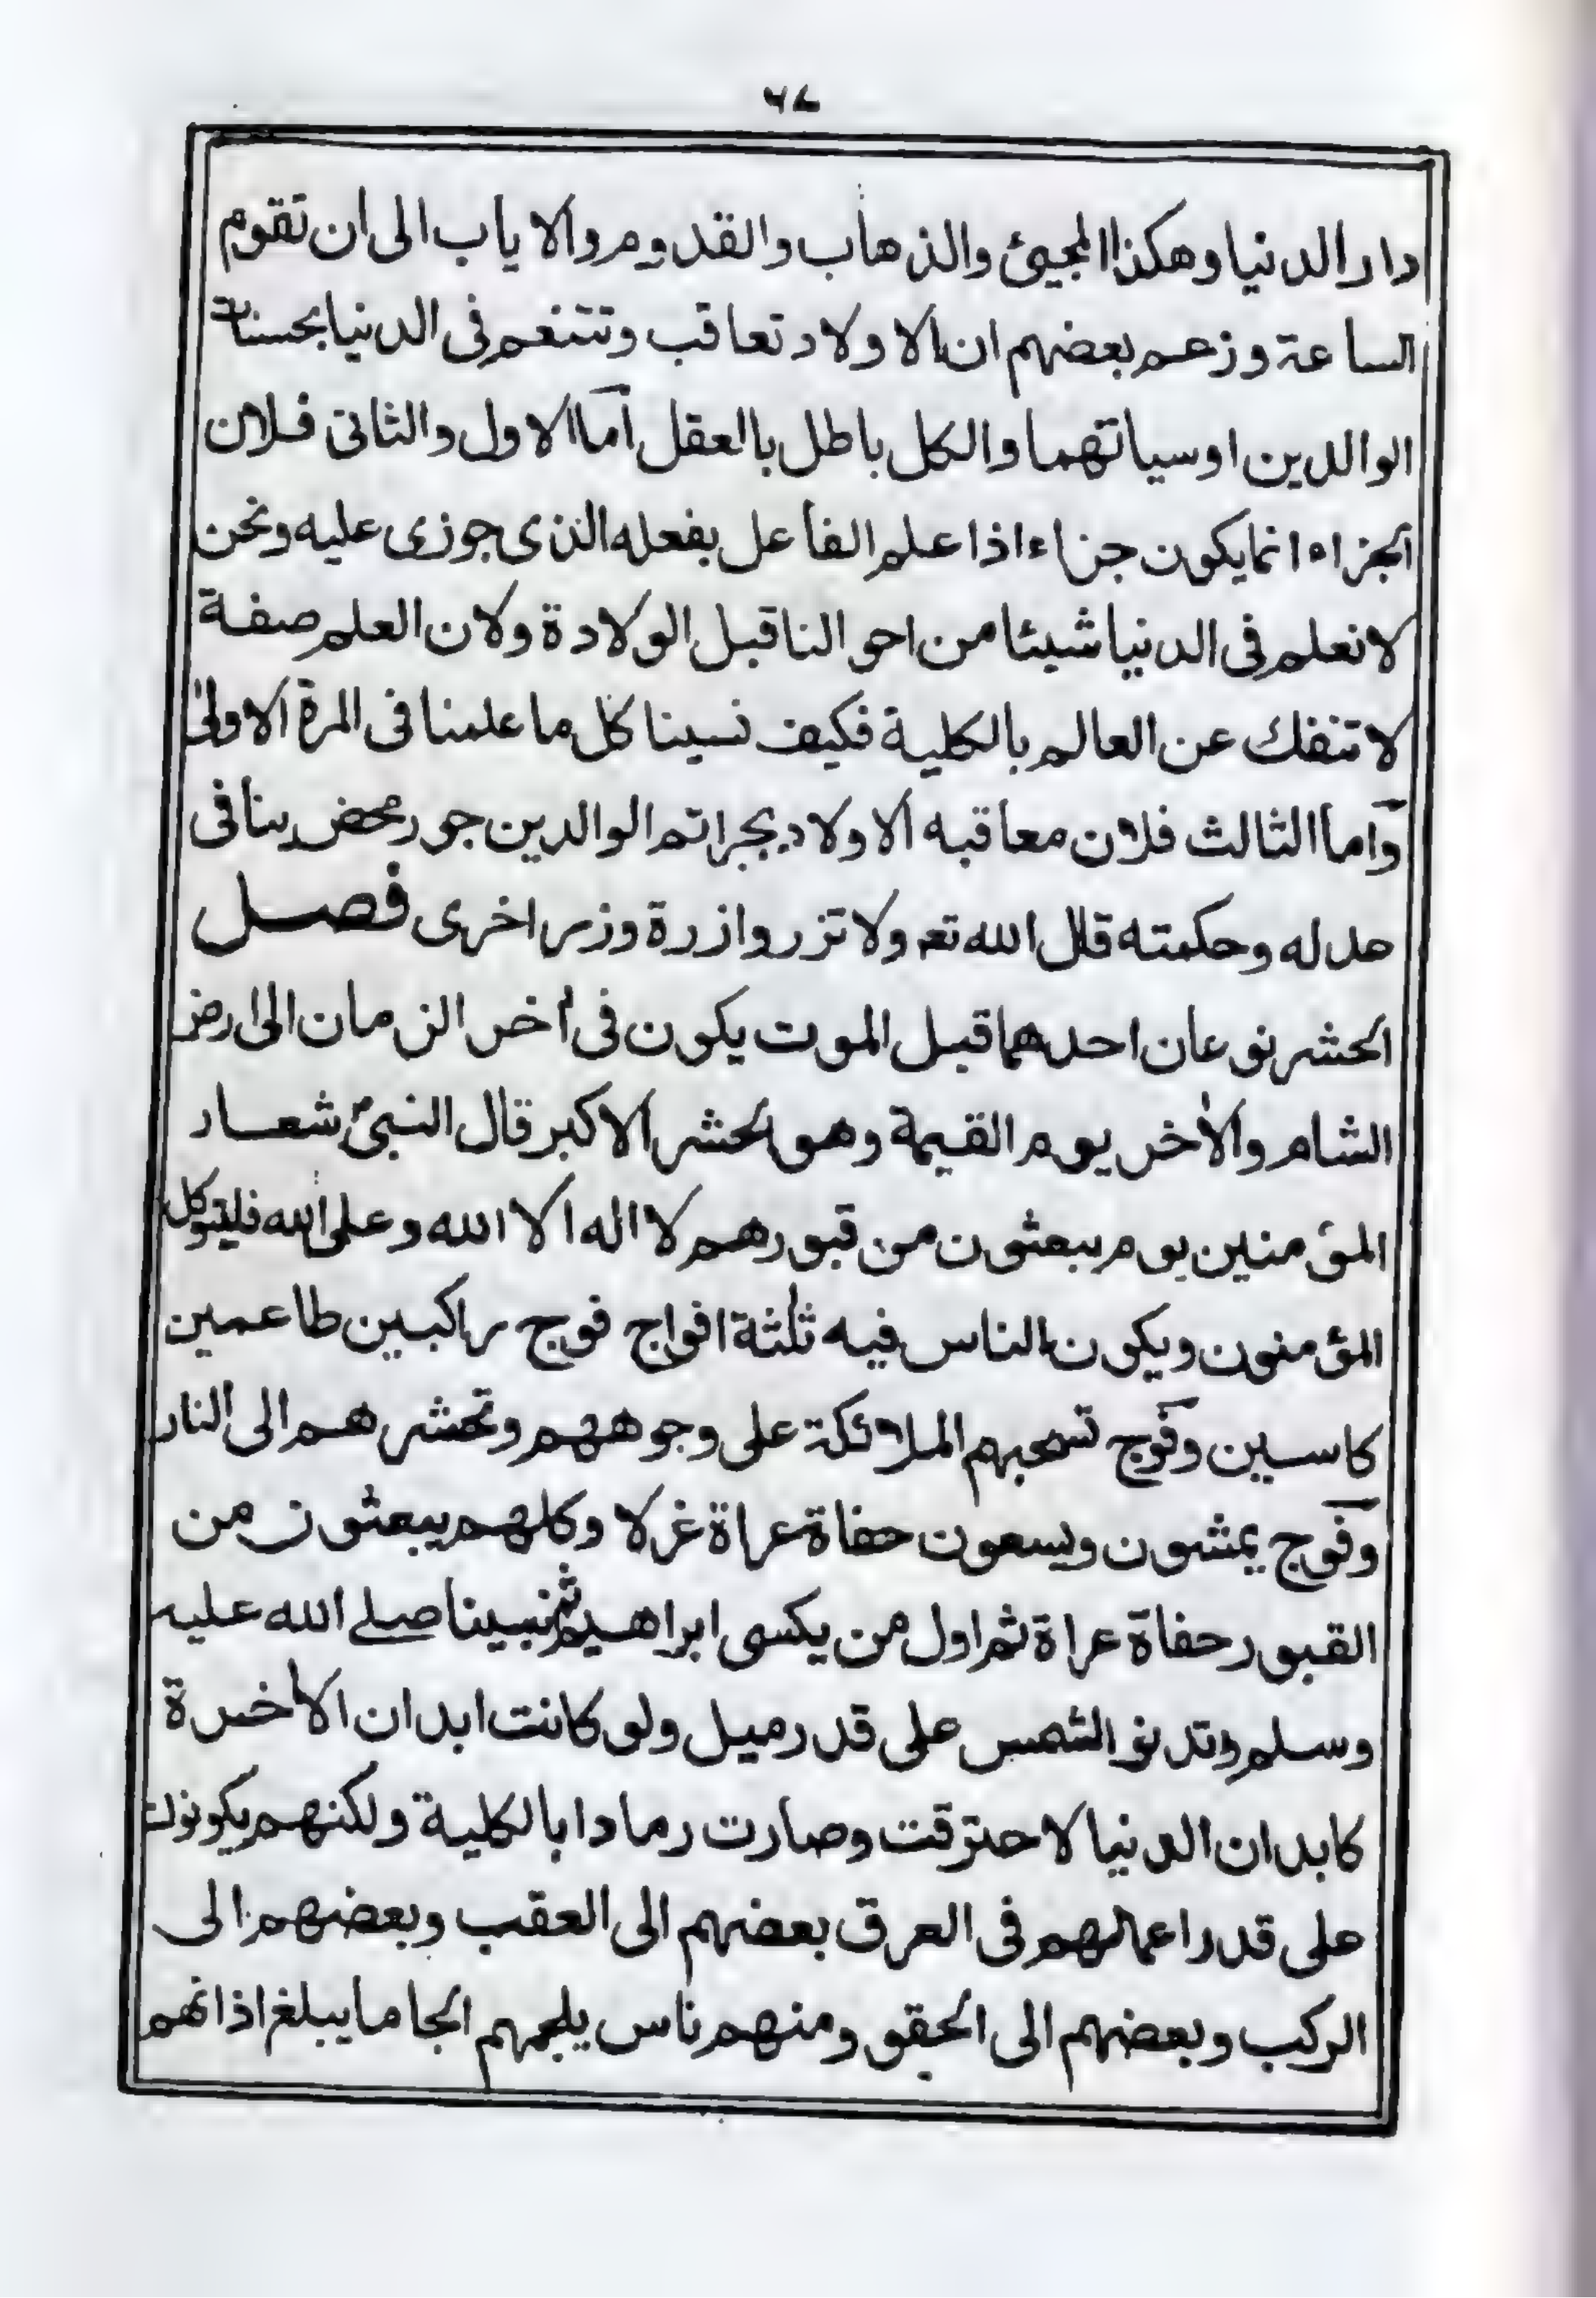 ٦٧
دار الدنيا وهكذا المجيئ والذهاب والقدوم والاياب الى ان تقوم
الساعة وزعم بعضهم ان الاولاد تعاقب وتتنعم فى الدنيا بحسنات
الوالدين اوسياتهما والكل باطل بالعقل اما الاول والثانى فلان
الجزاء انما يكون جزاء اذا علم الفاعل بفعله الذى جوزى عليه ونحن
لا نعلم فى الدنيا شيئا من احوالنا قبل الولادة ولان العلم صفة
لا تنفك عن العالم بالكلية فكيف نسينا كل ما علمنا فى المرة الاولىٰ
واما الثالث فلان معاقبه الاولاد بجراتم الوالدين جور محض ينافى
عدله وحكمته قال الله تعـ ولا تزر وازرة وزر اخرى فصـــل
الحشر نوعان احدهما قبل الموت يكون فى اٰخر الزمان الى ارض
الشام والاٰخر يوم القيمة وهو الحشر الاكبر قال النبىؐ شعار
المؤمنين يوم يبعثون من قبورهم لا اله الا الله وعلى الله فليتوكل
المؤمنون ويكون الناس فيه ثلٰثة افواج فوج راكبين طاعمين
كاسين وفوج تسحبهم الملائكة على وجوههم وتحشرهم الى النار
وفوج يمشون ويسعون حفاة عراة غرلا وكلهم يبعثون من
القبور حفاة عراة ثم اول من يكسى ابراهيم ثم نبينا صلے الله عليه
وسلم وتدنو الشمس على قدر ميل ولو كانت ابدان الاٰخرة
كابدان الدنيا لاحترقت وصارت رمادا بالكلية ولكنهم يكونون
على قدر اعمالهم فى العرق بعضهم الى العقب وبعضهم الى
الركب وبعضهم الى الحقو ومنهم ناس يلجمهم الجاما يبلغ اذانهم